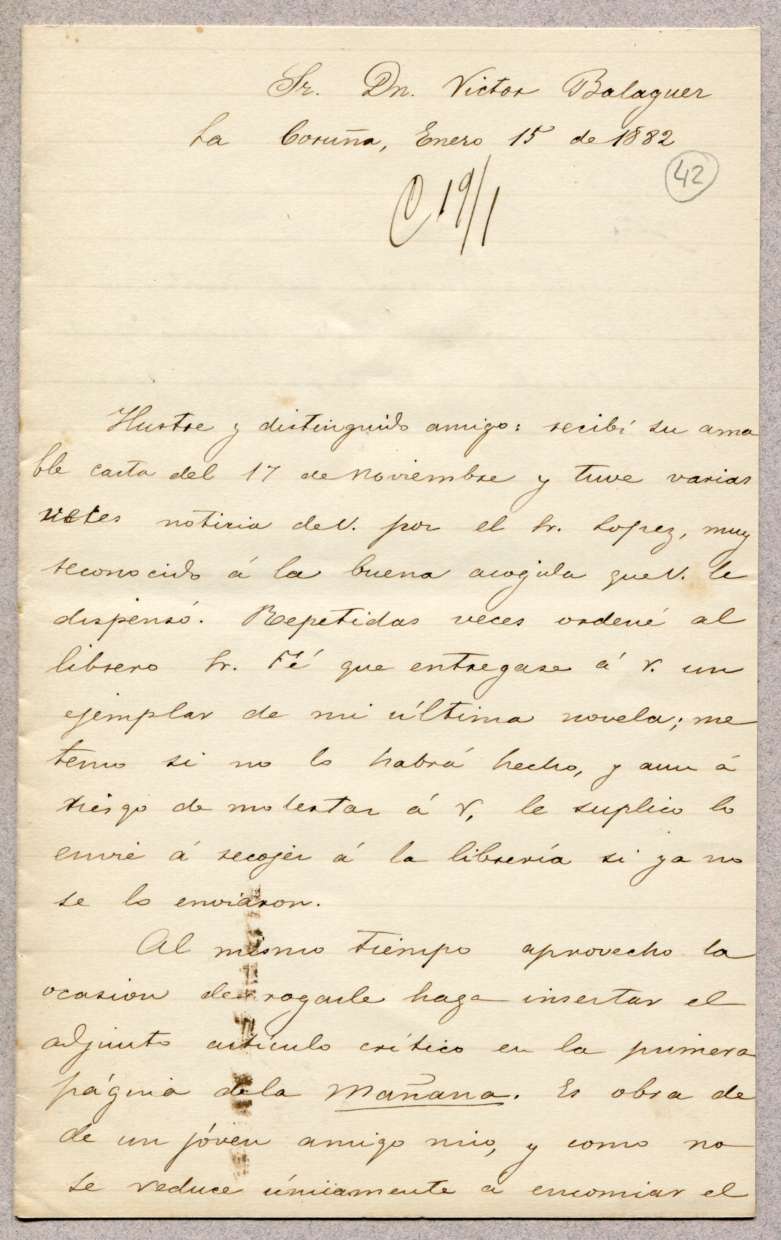 Sr. Dn. Victor Balaguer
La Coruña, Enero 15 de 1882
42
C 19/1
Ilustre y distinguido amigo: recibí su ama
ble carta del 17 de Noviembre y tuve varias
veces noticia de V. por el Sr. Lopez, muy
reconocido á la buena acogida que V. le
dispensó. Repetidas veces ordené al
librero Sr. Fé que entregase á V. un
ejemplar de mi última novela; me
temo si no lo habrá hecho, y aun á
riesgo de molestar á V, le suplico lo
envie á recojer á la librería si ya no
se lo enviaron.
Al mismo tiempo aprovecho la
ocasion de rogarle haga insertar el
adjunto artículo crítico en la primera
página de la Mañana. Es obra de
de un jóven amigo mio, y como no
se reduce únicamente a encomiar el